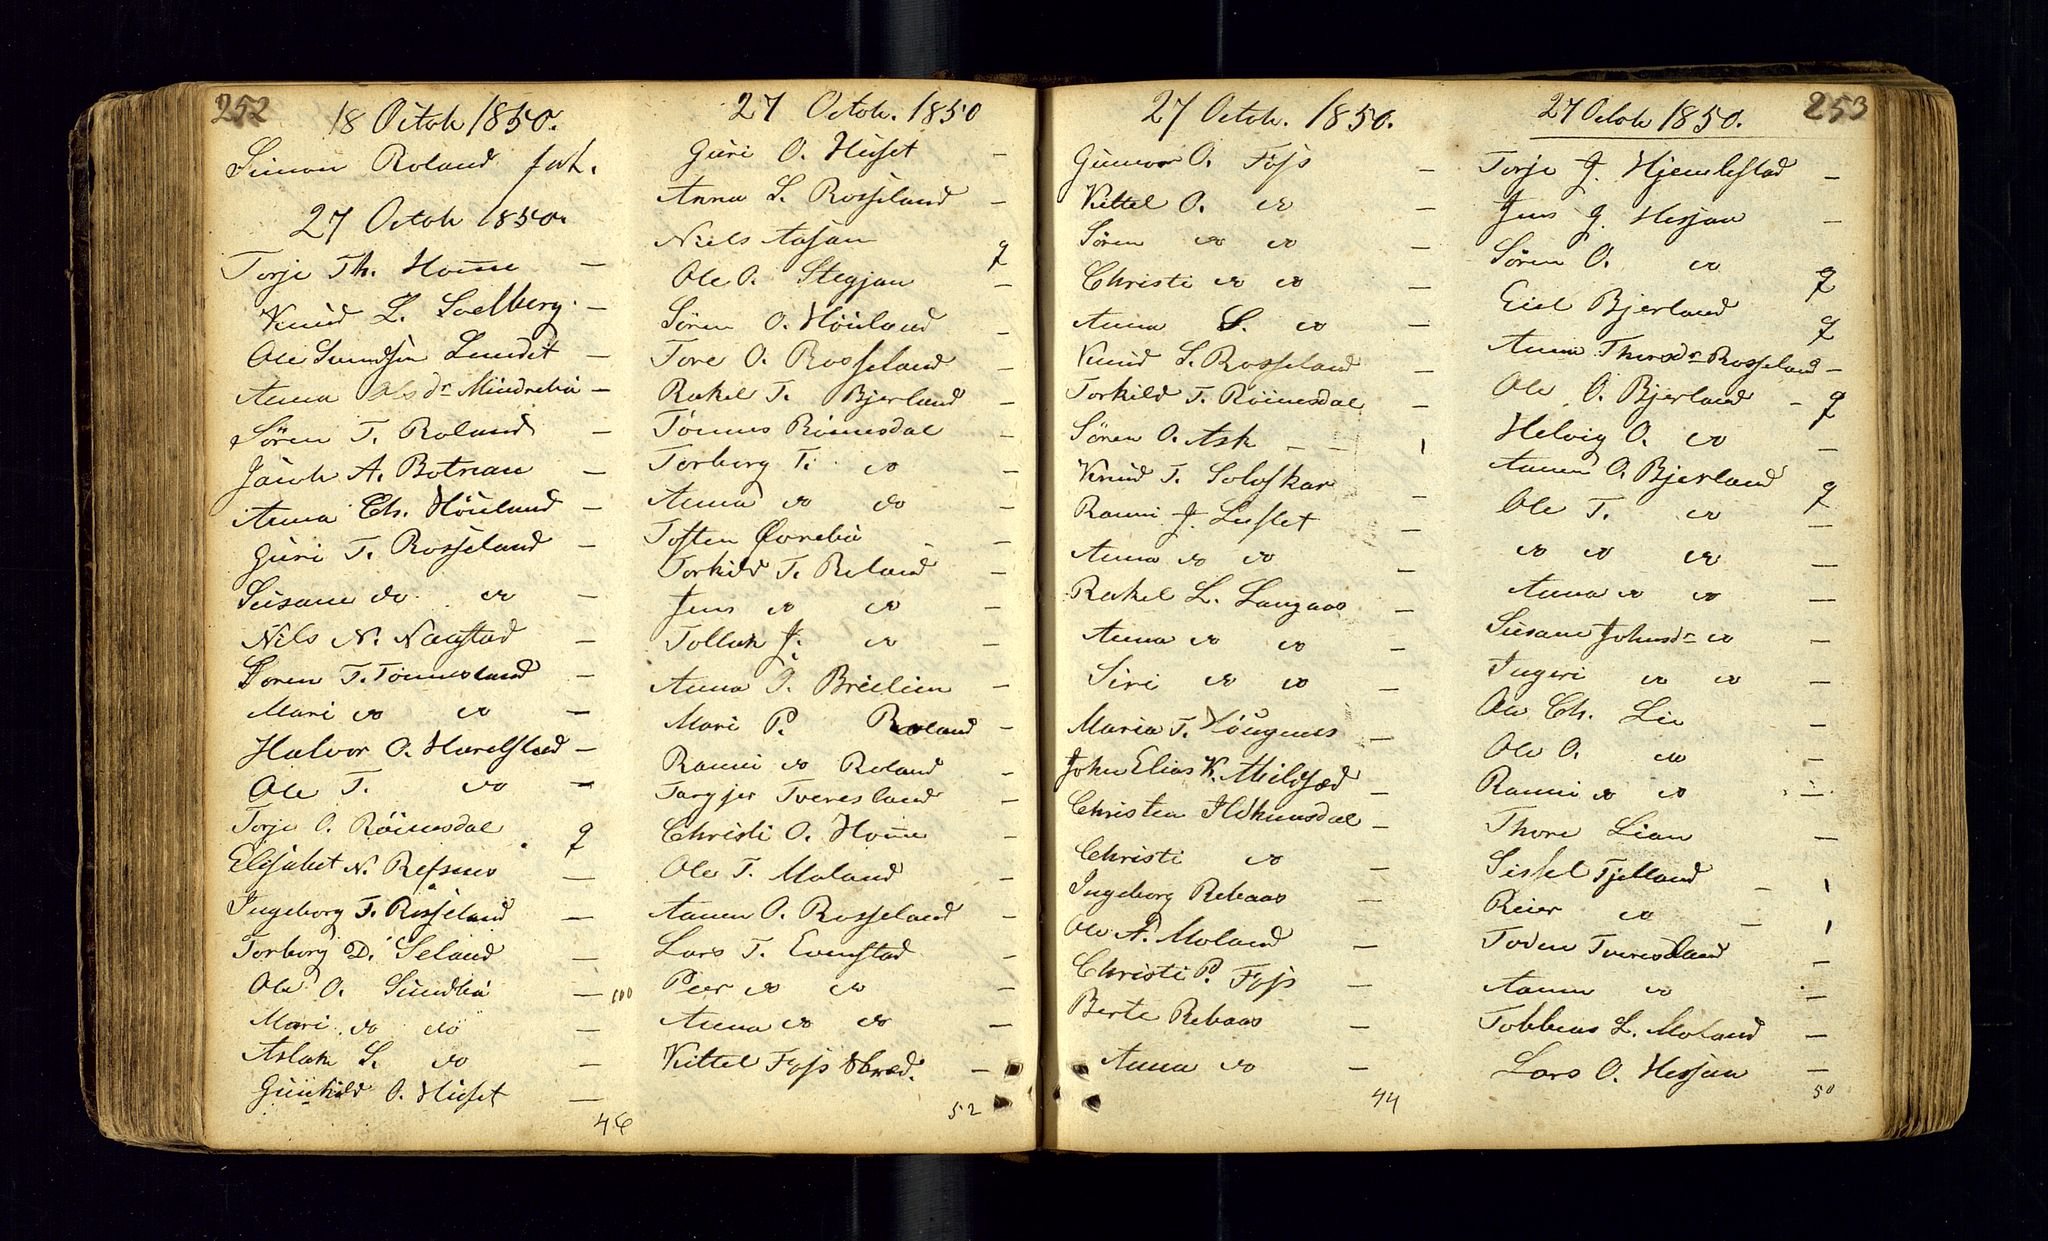 252
18 Octob 1850.
Simon Roland fat.
27 Octob 1850.
Torje Th. Home –
Knud L. Soelberg. –
Ole Lundet –
Anna Olsdr Mindrebö –
Sören T. Roland –
Jacob A. Botnan –
Anna Ch. Höuland –
Guri T. Rosseland –
Susane do do –
Nils N. Naustad –
Sören T. Tönnesland –
Mari do do –
Halvor O. Harelstad –
Ole T. do –
Torje O. Röinesdal . q
Elisabet N. Refsnes –
Ingeborg T. Rosseland –
Torborg D. Seland –
Ole O. Sundbö – 100
Mari do do –
Aslak S. do –
Gunhild O. Huset –
46
27 Octob. 1850
Guri O. Huset –
Anna S. Rosseland –
Niels Aasan q
Ole O. Stegjan –
Sören O. Höuland –
Tore O. Rosseland –
Rakel T. Bjerland –
Tönnes Röinesdal –
Torborg T. do –
Anna do do –
Tosten Övrebö –
Torkild T. Roland –
Jens do do –
Tollak J. do –
Anna O. Breilien –
Mari P. Roland –
Ranni do Roland –
Targjer Tveresland –
Christi O. Home –
Ole T. Moland –
Aanen O. Rosseland –
Lars T. Evenstad –
Peer do do –
Anna do do –
Kittel Fyss –
52
27 Octob. 1850.
Gunvor O. Föss –
Kittel O. do –
Sören do do –
Christi do do –
Anna S. do –
Knud S. Rosseland –
Torkild T. Röinesdal –
Sören O. Ask – – 1
Knud T. –
Ranni J. –
Anna do do –
Rakel L. Langaas –
Anna do do –
Siri do do –
Maria T. –
John Elias K. –
Christen –
Christi do –
Ingeborg Rebaas –
Ole A. Moland –
Christi P. Fyss –
Berte Rebaas –
Anna do –
44
253
27 Octob 1850.
Torje J. Hjemlestad –
Jens J. Hesjan –
Sören O. do q
Eiel Bjerland q
Anna Thorsdr Rosseland –
Ole O. Bjerland – q
Helvig O. do –
Aanen O. Bjerland q
Ole T. do –
do do do –
Anna do do –
Susane Johnsdr do –
Ingeri do do –
Ole Ch. Lie –
Ole O. do –
Ranni do do –
Thore Lian –
Sissel Fjelland – 1
Reier do – 1
Toden Tveresland –
Aanen do –
Tobbias L. Moland –
Lars O. Hesjan –
50